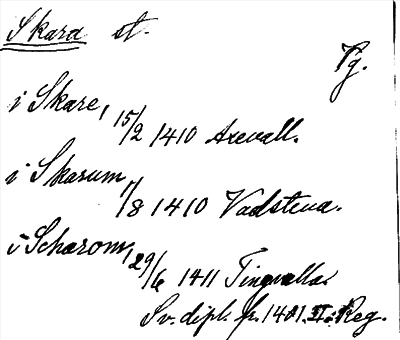 Skara st.
Pg.
i Skare, 15/2 1410 Axevall.
i Skarum, 1/8 1410 Vadstena.
i Scharom, 29/6 1411 Tingvalla.
Sv. dipl. fr. 1401. II: Reg.